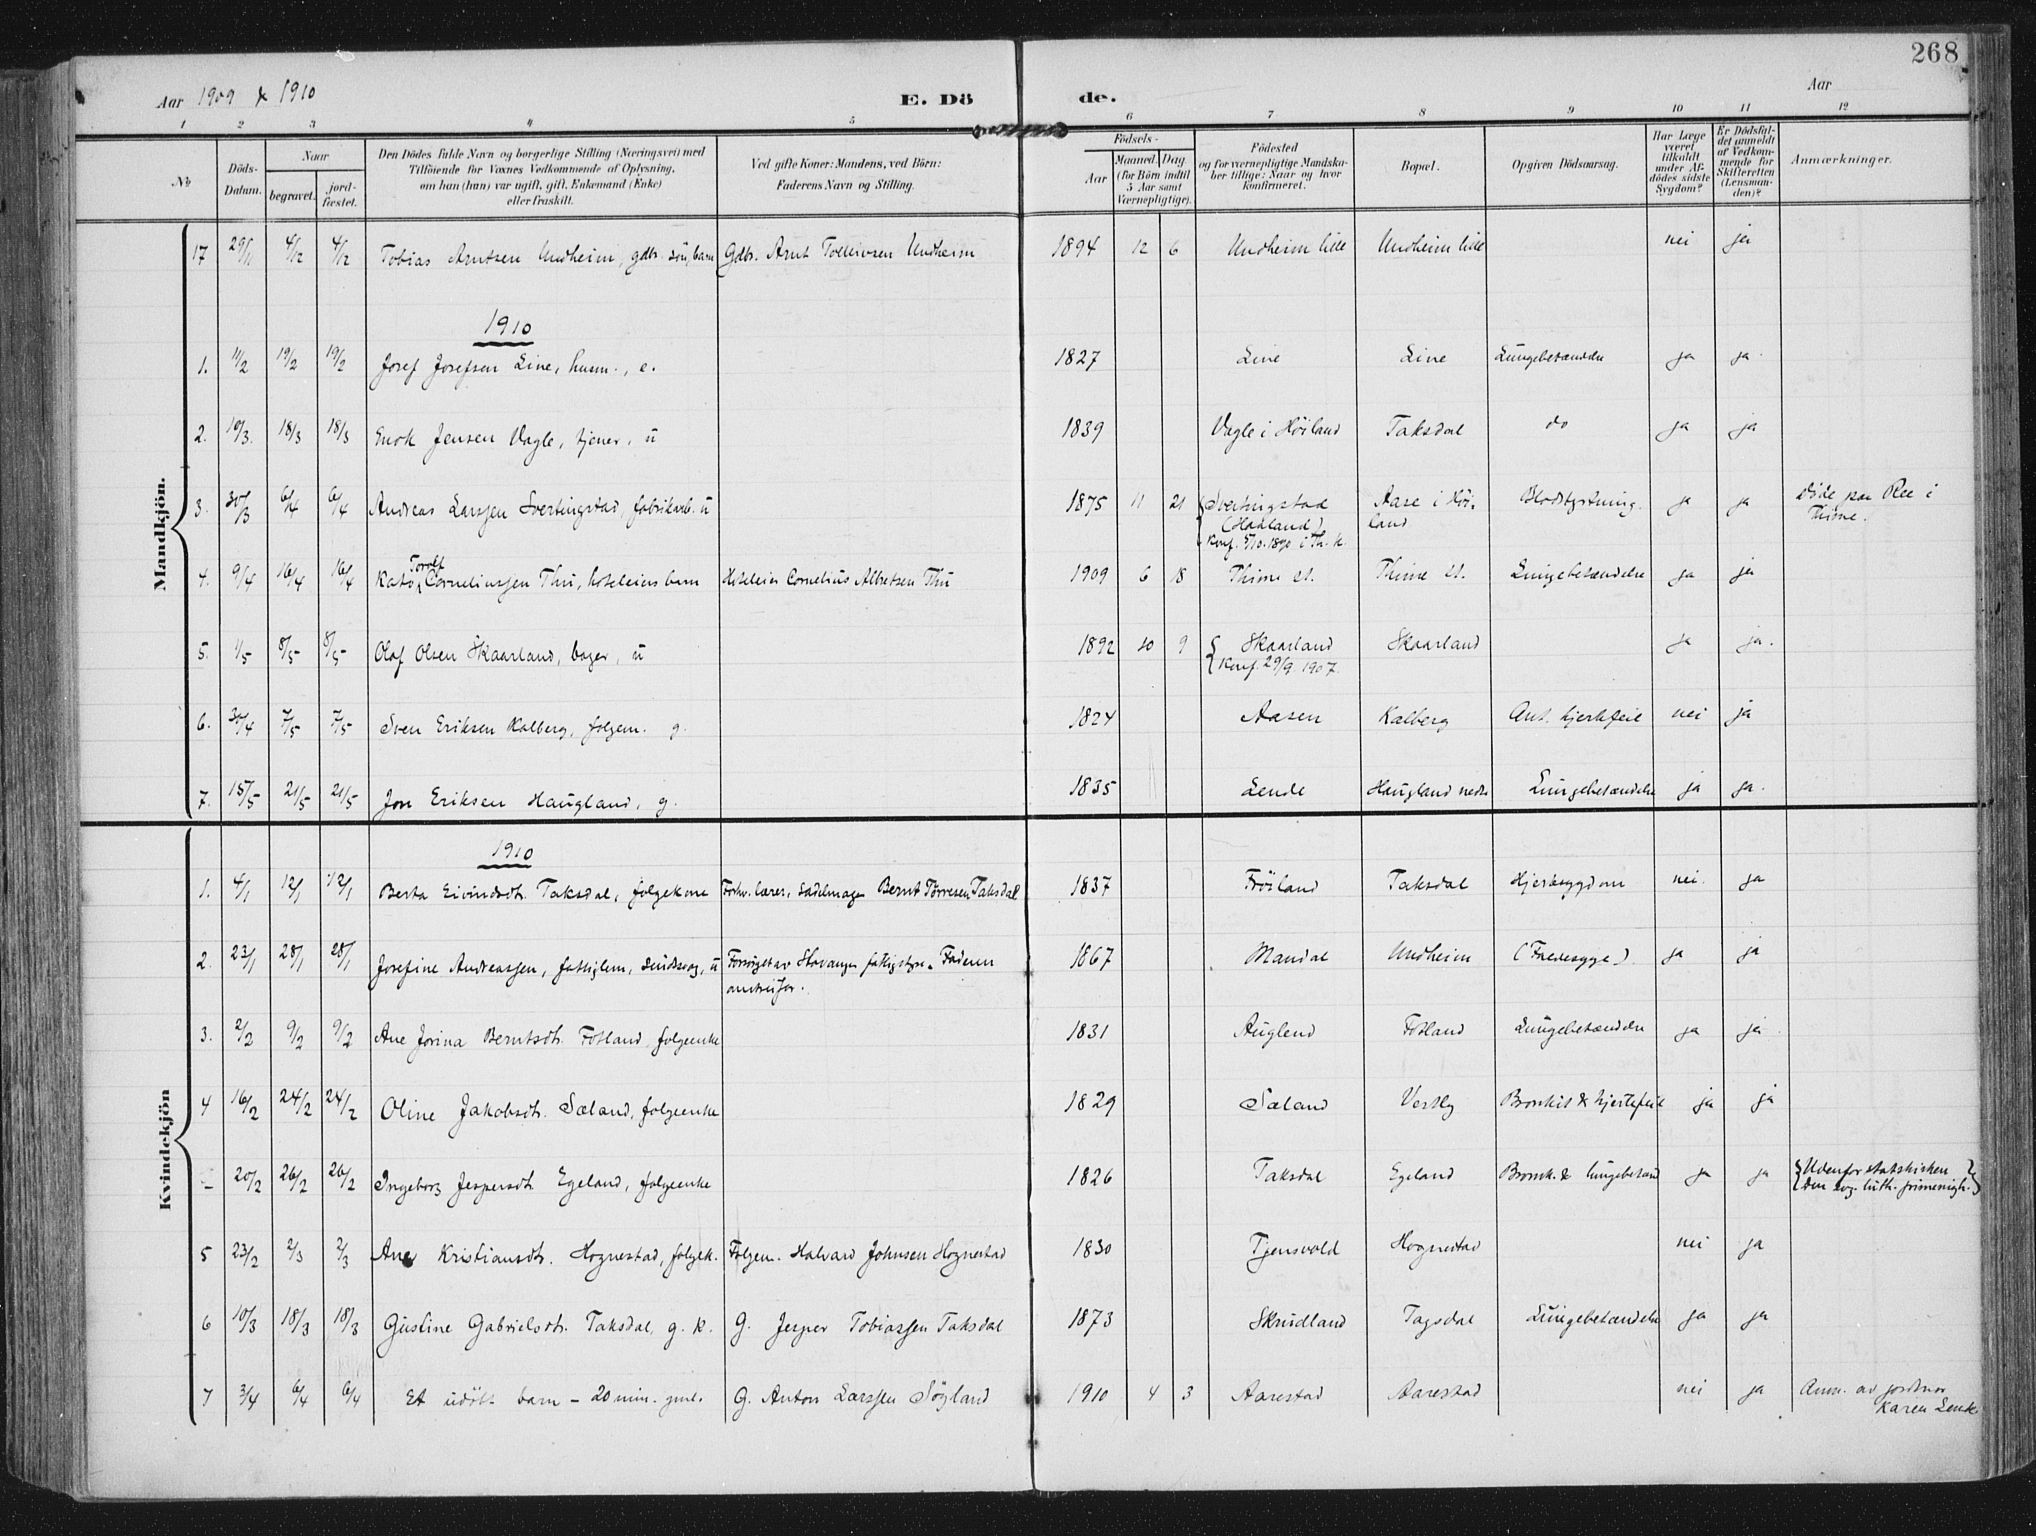 268
Aar 1909 & 1910 E. Dö de. Aar
1 2 3 4 5 6 7 8 9 10 11 12
No Döds-Datum. Naar begravet. jord-fæstet. Den Dödes fulde Navn og borgerlige Stilling (Næringsvei) med Tilföiende for Voxnes Vedkommende af Oplysning, om han (hun) var ugift, gift, Enkemand (Enke) eller fraskilt. Ved gifte Koner: Mandens, ved Börn: Faderens Navn og Stilling. Födsels- Aar Maaned. Dag. (for Börn indtil 5 Aar samt Værnepligtige). Födested og for værnepligtige Mandska-ber tillige: Naar og hvor konfirmeret. Bopæl. Opgiven Dödsaarsag. Har Læge været tilkaldt under Af-dödes sidste Sygdom? Er Dödsfal-det anmeldt af Vedkom-mende for Skifteretten (Lensman-den)? Anmærkninger.
Mandkjön.
17 29/1 4/2 4/2 Tobias Arntsen Undheim, gdbr. sön, barn Gdbr. Arnt Tolleivsen Undheim 1894 12 6 Undheim lille Undheim lille nei ja
1910
1. 11/2 19/2 19/2 Josef Josefsen Line, husm., e. 1827 Line Line Lungebetændelse ja ja
2. 10/3. 18/3 18/3 Enok Jensen Vagle, tjener, u 1839 Vagle i Höiland Taksdal do ja ja
3. 30/3 6/4 6/4 Andreas Larssen Svertingstad, fabrikarb. u 1875 11 21 Svertingstad Aase i Höi-land Blodstyrtning. ja ja Döde paa Ree i
(Haaland) Thime.
Konf. 5/10.1890 i Th. k.
4. 9/4 16/4 16/4 Kato Torolf Corneliussen Thu, hoteleiers barn Hoteleier Cornelius Albretsen Thu 1909 6 18 Thime st. Thime st. Lungebetændelse ja ja
5. 1/5 8/5 8/5 Olaf Olsen Skaarland, bager, u 1892 10 9 Skaarland Skaarland ja ja.
Konf. 29/9 1907.
6. 30/4 7/5 7/5 Sven Eriksen Kalberg, folgem. g. 1824 Aasen Kalberg Ant. hjertefeil nei ja
7. 15/5 21/5 21/5 Jon Eriksen Haugland, g. 1835 Lende Haugland nedre Lungebetændelse ja ja.
Kvindekjön
1910
1. 4/1 12/1 12/1 Berta Eivindsdt. Taksdal, folgekone Forhv. lærer, sadelmager Bernt Törresen Taksdal 1837 Fröiland Taksdal Hjertesygdom nei. ja
2. 23/1 28/1 28/1 Josefine Andreassen, fattiglem, sindssvag, u Forsörget av Stavanger fattigstyre. Faderen 1867 Mandal Undheim ja ja
3. 2/2 9/2 9/2 Ane Jorina Berntsdt. Fotland, folgeenke 1831 Auglend Fotland Lungebetændelse ja ja
4 16/2 24/2 24/2 Oline Jakobsdt. Sæland, folgeenke 1829 Sæland Vestly Bronkit & hjertefeil ja ja
- 20/2 26/2 26/2 Ingeborg Jespersdt Egeland, folgeenke 1826 Taksdal Egeland Bronk. & lungebetænd ja ja Udenfor statskirken
Den evg. luth. frimenigh.
5 23/2 2/3 2/3 Ane Kristiansdt. Hognestad, folgek. Folgem. Halvard Johnsen Hognestad 1830 Tjensvold Hognestad nei ja
6 10/3 18/3 18/3 Gustine Gabrielsdt. Taksdal, g. k. G. Jesper Tobiassen Taksdal 1873 Skrudland Tagsdal Lungebetændelse ja ja
7 3/4 6/4 6/4 Et udöbt barn - 20 min. gml. G. Anton Larssen Söyland 1910 4 3 Aarestad Aarestad nei ja Anm. av jordmor
Karen Lende